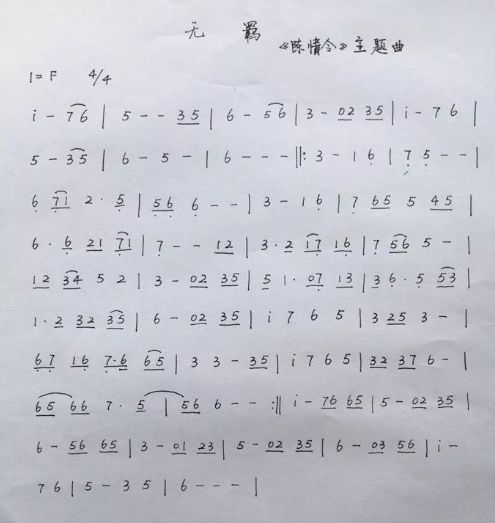 无 羁
《陈情令》主题曲
1=F 4/4
i - 76 | 5 - - 35 | 6 - 56 | 3 - 02 35 | i - 76 |
5 - 35 | 6 - 5 - | 6 - - - ‖: 3 - 1 6 | 7 5 - - |
6 71 2 · 5 | 56 6 - - | 3 - 1 6 | 7 65 5 45 |
6 · 6 21 71 | 7 - - 12 | 3 · 2 17 16 | 7 56 5 - |
12 34 5 2 | 3 - 02 35 | 5 1 · 07 13 | 3 6 · 5 53 |
1 · 2 32 35 | 6 - 02 35 | i 7 6 5 | 3 25 3 - |
67 16 7·6 65 | 3 3 - 35 | i 7 6 5 | 32 37 6 - |
65 66 7 · 5 | 56 6 - - :‖ i - 76 65 | 5 - 02 35 |
6 - 56 65 | 3 - 01 23 | 5 - 02 35 | 6 - 03 56 | i -
7 6 | 5 - 3 5 | 6 - - - |